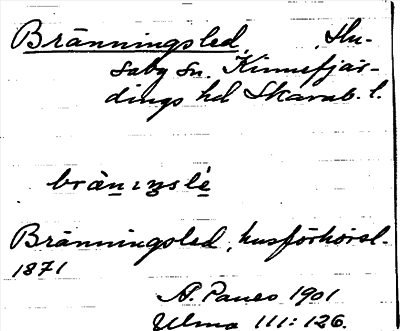 Bränningsled, Hu-
saby sn. Kinnefjär-
dings hd Skarab. l.
brän̲ıŋslé̲
Bränningsled, husförhörsl.
1871
1901
Ulma 111:126